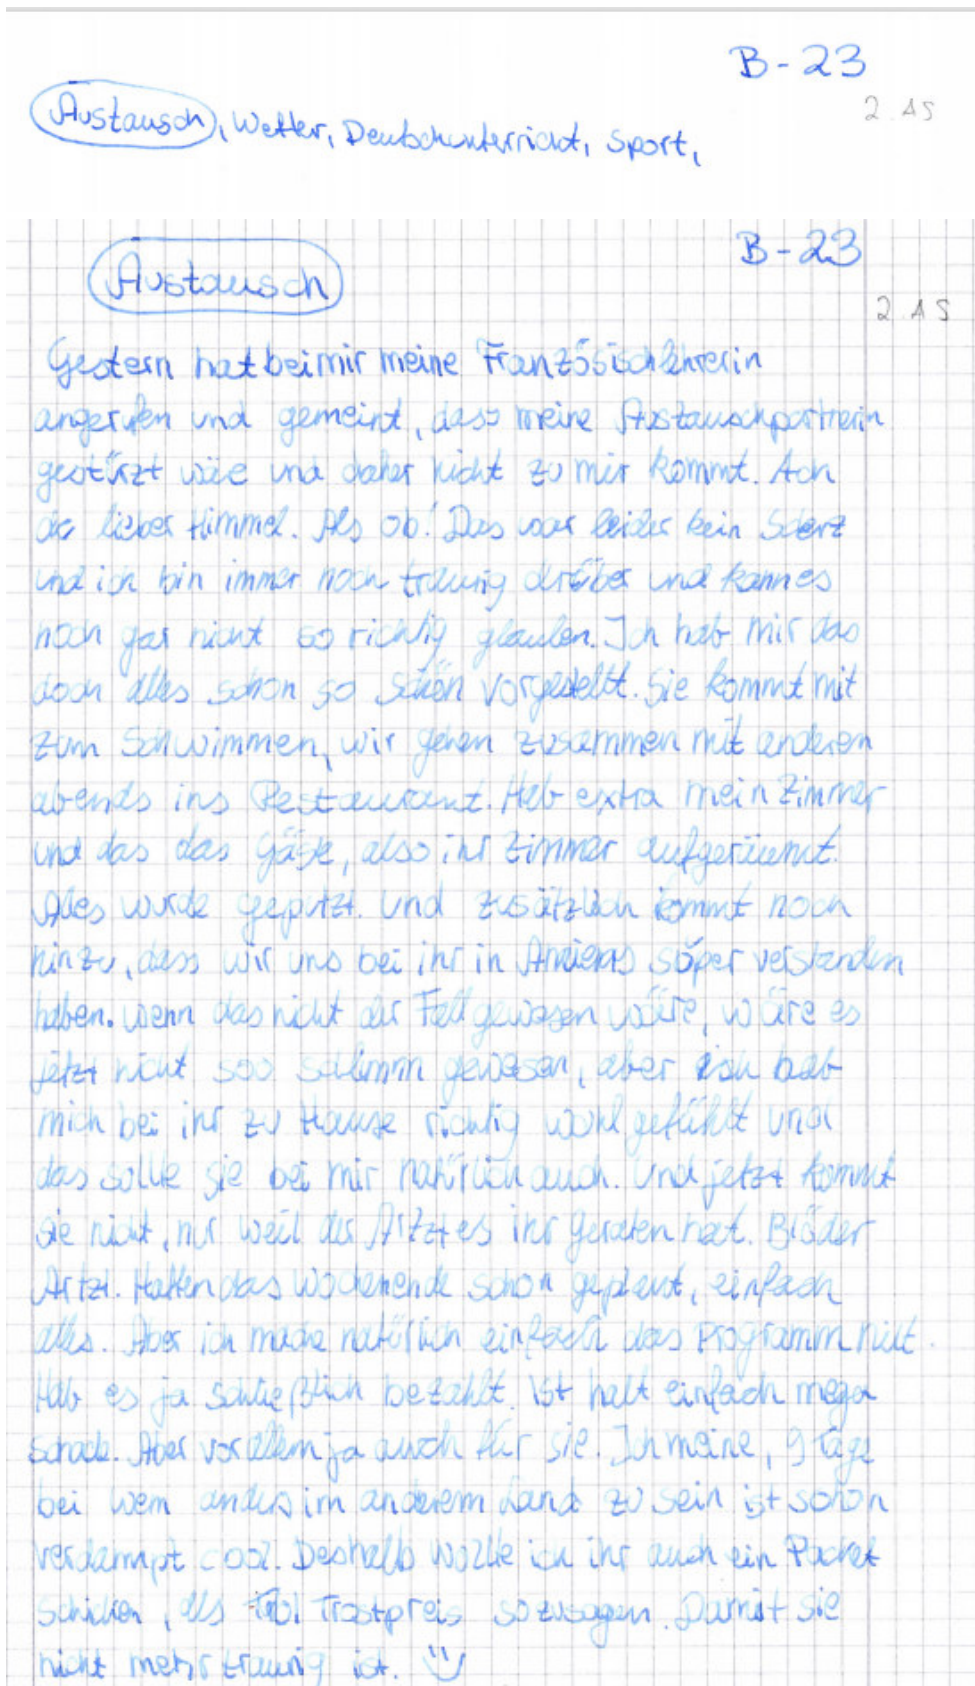 B-23
2. AS
Austausch, Wetter, Deutschunterricht, Sport,
B-23
Austausch
2 AS
Gestern hat bei mir meine Französischlehrerin
angerufen und gemeint, dass meine Austauschpartnerin
gestürzt wäre und daher nicht zu mir kommt. Ach
du lieber Himmel. Als ob! Das war leider kein Scherz
und ich bin immer noch traurig drüber und kann es
noch gar nicht so richtig glauben. Ich hab mir das
doch alles schon so schön vorgestellt. Sie kommt mit
zum Schwimmen, wir gehen zusammen mit anderen
abends ins Restaurant. Hab extra mein Zimmer
und das das Gäste, also ihr Zimmer aufgeräumt.
Alles wurde geputzt. Und zusätzlich kommt noch
hinzu, dass wir uns bei ihr in super verstanden
haben. Wenn das nicht der Fall gewesen wäre, wäre es
jetzt nicht soo schlimm gewesen, aber ich hab
mich bei ihr zu Hause richtig wohl gefühlt und
das sollte sie bei mir natürlich auch. Und jetzt kommt
sie nicht, nur weil der Artzt es ihr geraten hat. Blöder
Artzt. Hatten das Wochenende schon geplant, einfach
alles. Aber ich mache natürlich einfach das Programm mit.
Hab es ja schließlich bezahlt. Ist halt einfach mega
schade. Aber vor allem ja auch für sie. Ich meine, 9 Tage
bei wem anders im anderem Land zu sein ist schon
verdammpt cool. Deshalb wollte ich ihr auch ein Packet
schicken, als Trostpreis sozusagen. Damit sie
nicht mehr traurig ist.